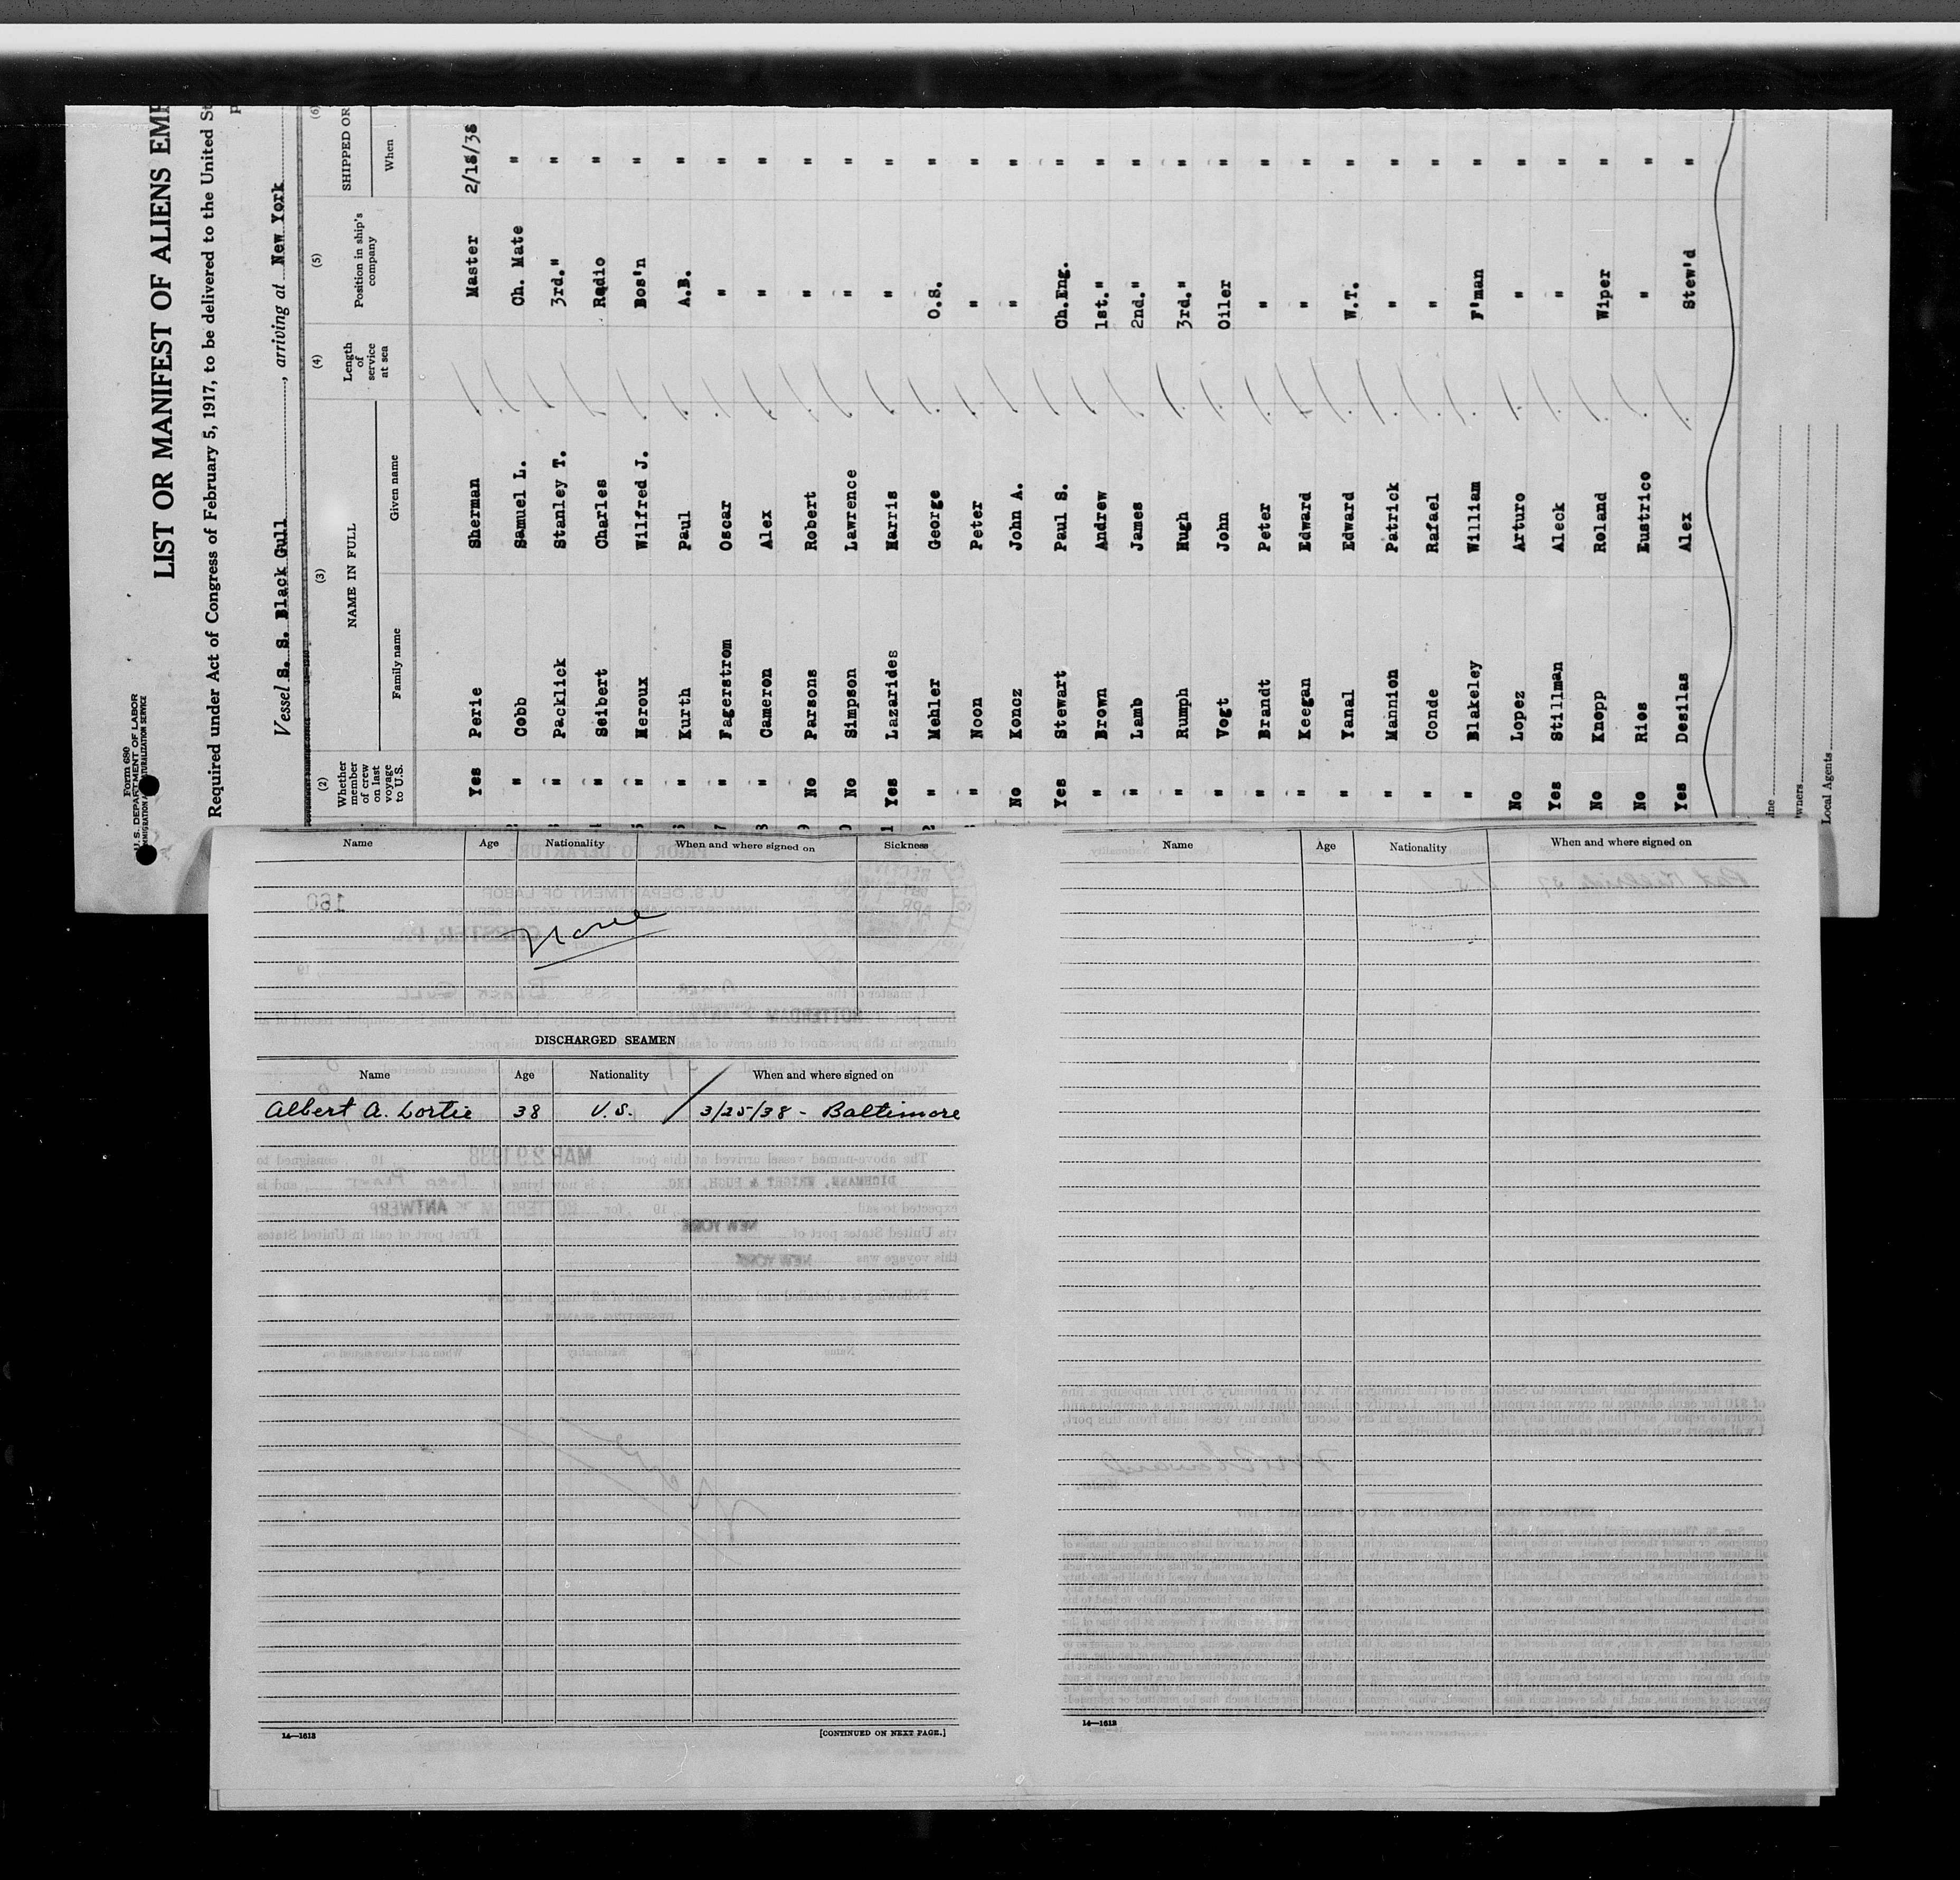 Form 680
U.S. DEPARTMENT OF LABOR
LIST OR MANIFEST OF ALIENS EMP
Required under Act of Congress of February 5, 1917, to be delivered to the United St
Vessel S. S. Black Gull, arriving at New York
(2) (3) (4) (5) (6)
Whether member of crew on last voyage to U.S. NAME IN FULL Length of service at sea Position in ship's company SHIPPED OR
Family name Given name When
Yes Perie Sherman Master 2/18/38
" Cobb Samuel L. Ch. Mate "
" Packlick Stanley T. 3rd. " "
" Seibert Charles Radio "
" Heroux Wilfred J. Bos'n "
" Kurth Paul A.B. "
" Fagerstrom Oscar " "
" Cameron Alex " "
No Parsons Robert " "
No Simpson Lawrence " "
Yes Lazarides Harris " "
" Mehler George O.S. "
" Noon Peter " "
No Koncz John A. " "
Yes Stewart Paul S. Ch.Eng. "
" Brown Andrew 1st." "
" Lamb James 2nd." "
" Rumph Hugh 3rd." "
" Vogt John Oiler "
" Brandt Peter " "
" Keegan Edward " "
" Yanal Edward W.T. "
" Mannion Patrick " "
" Conde Rafael " "
" Blakeley William F'man "
No Lopez Arturo " "
Yes Stillman Aleck " "
No Knopp Roland Wiper "
No Rios Eustrico " "
Yes Desilas Alex Stew'd "
Local Agents
Name Age Nationality When and where signed on Sickness
None
DISCHARGED SEAMEN
Name Age Nationality When and where signed on
Albert A. Lortie 38 U.S. 3/25/38 - Baltimore
14—1613 [CONTINUED ON NEXT PAGE.]
Name Age Nationality When and where signed on
14—1613